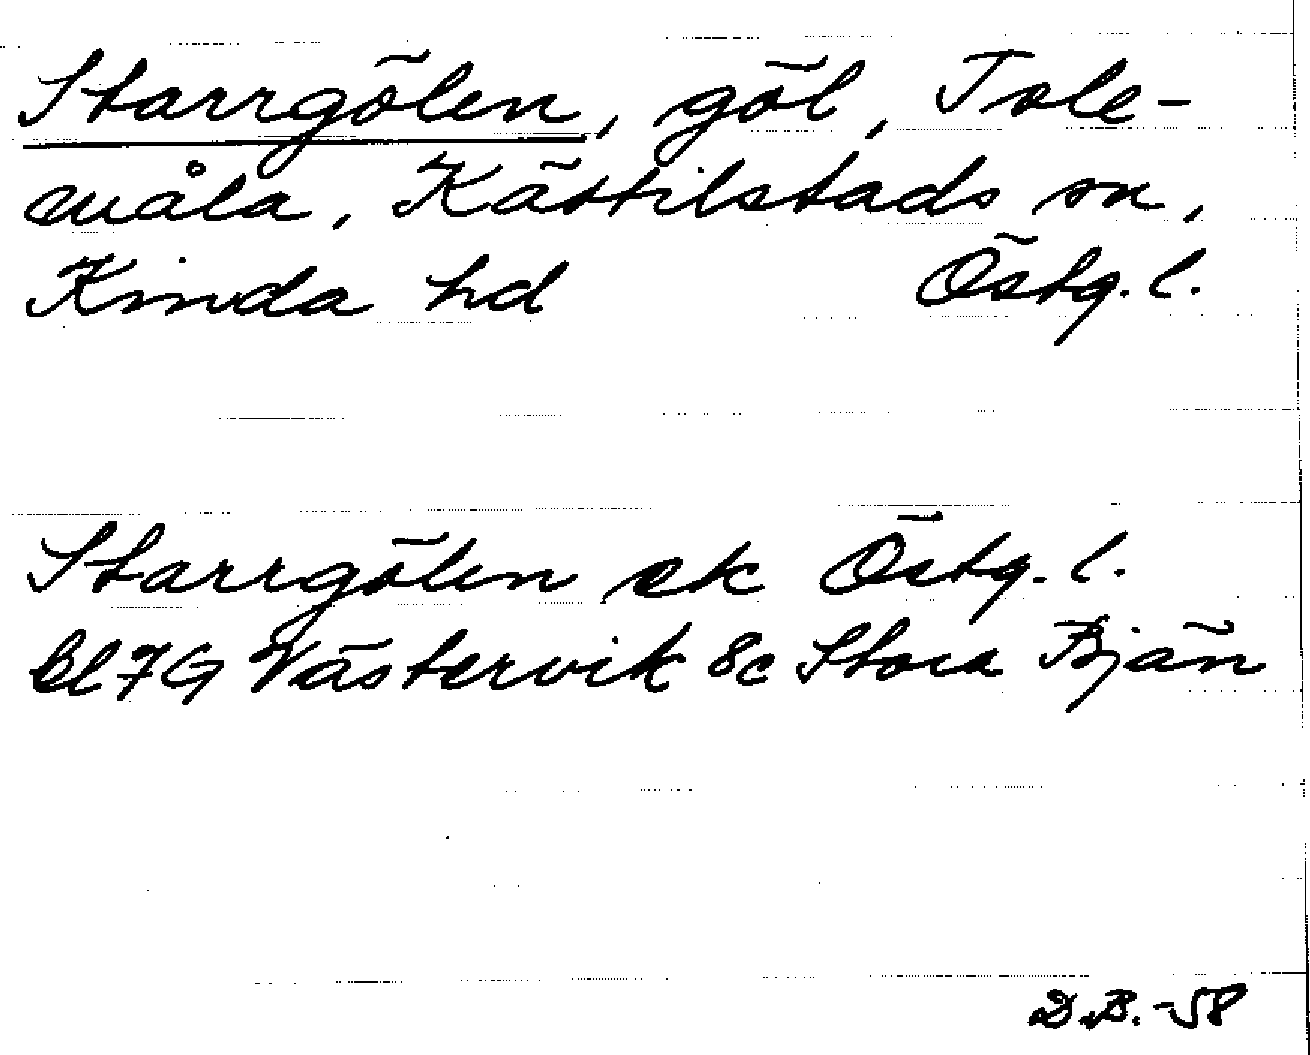 Starrgölen, göl, Tole-
måla, Kättilstads sn,
Kinda hd Östg. l.
Starrgölen ek Östg. l.
bl 7G Västervik 8c Stora Bjän
D.B. -58